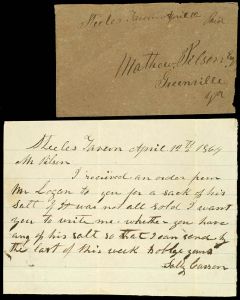 Steeles Tavern April 12 Paid
Mathew Pilson Esq
Greenville
Steeles Tavern April 12th 1864
Mr Pilson
I received an order from
Mr Logan to you for a sack of his
salt if it was not all sold I want
you to write me whether you have
any of his salt so that I can send by
the last of this week
Carson